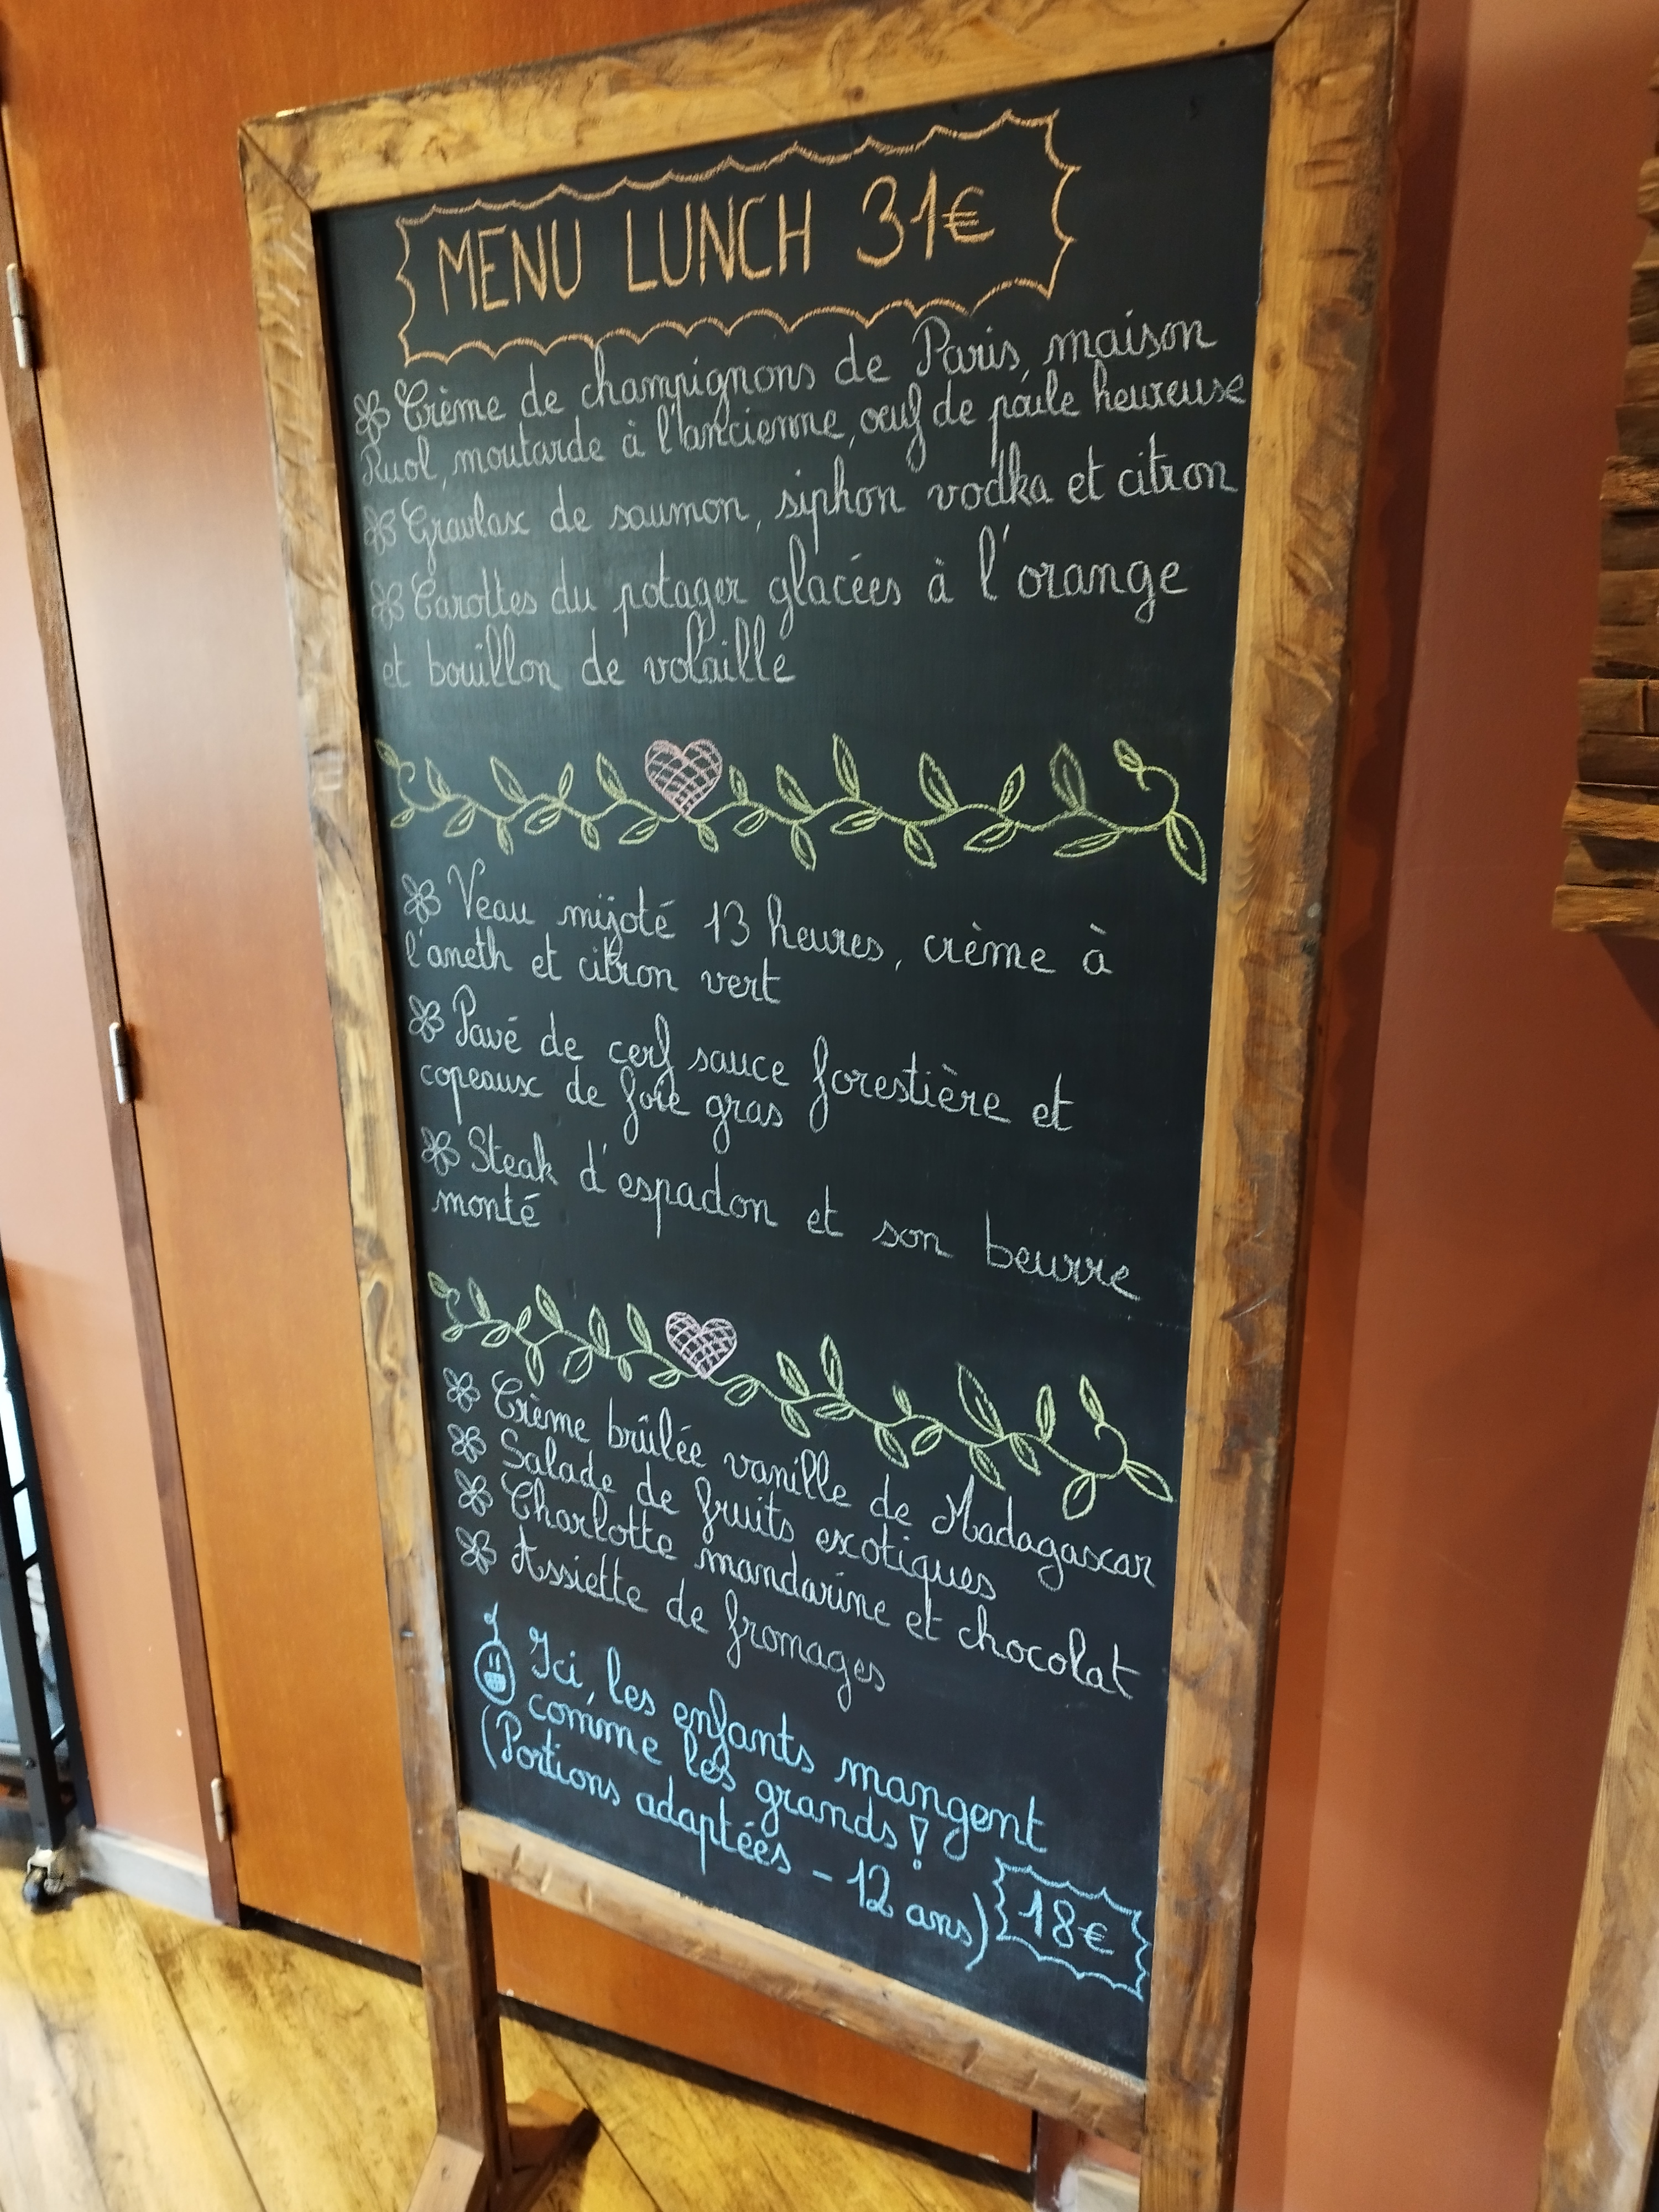 MENU LUNCH 31€
Crème de champignons de Paris, maison
Ruol, moutarde à l'ancienne, oeuf de poule heureuse
Gravlax de saumon, siphon vodka et citron
Carottes du potager glacées à l'orange
et bouillon de volaille
Veau mijoté 13 heures, crème à
l'aneth et citron vert
Pavé de cerf sauce forestière et
copeaux de foie gras
Steak d'espadon et son beurre
monté
Crème brûlée vanille de Madagascar
Salade de fruits exotiques
Charlotte mandarine et chocolat
Assiette de fromages
Ici, les enfants mangent
comme les grands !
(Portions adaptées - 12 ans) 18€